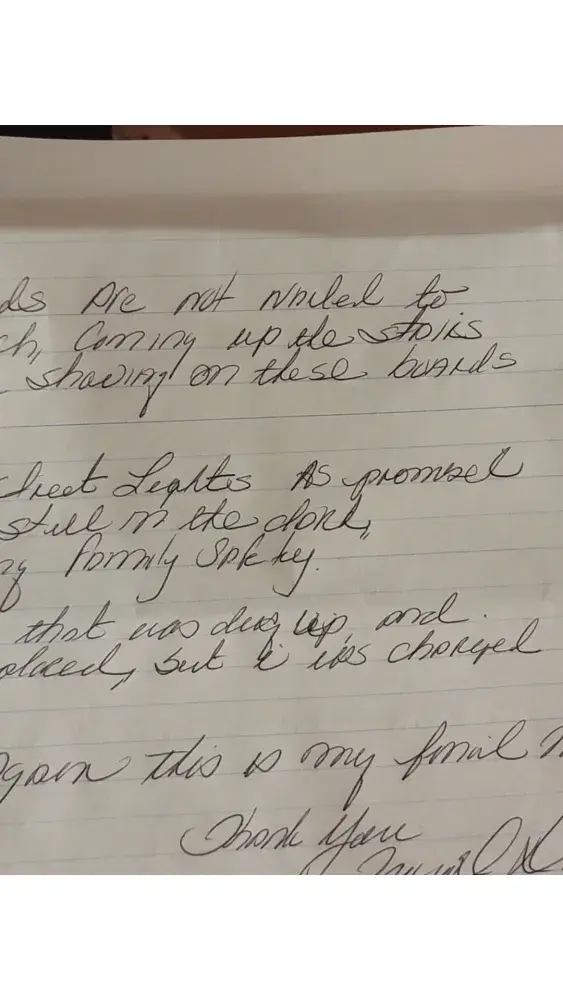 ds Are not nailed to
ch, Coming up the stairs
showing on these boards
treet Lights As promised
still in the dark,
ng Family Safety.
that was dug up, and
placed, but i was charged
Again this is my final
Thank You